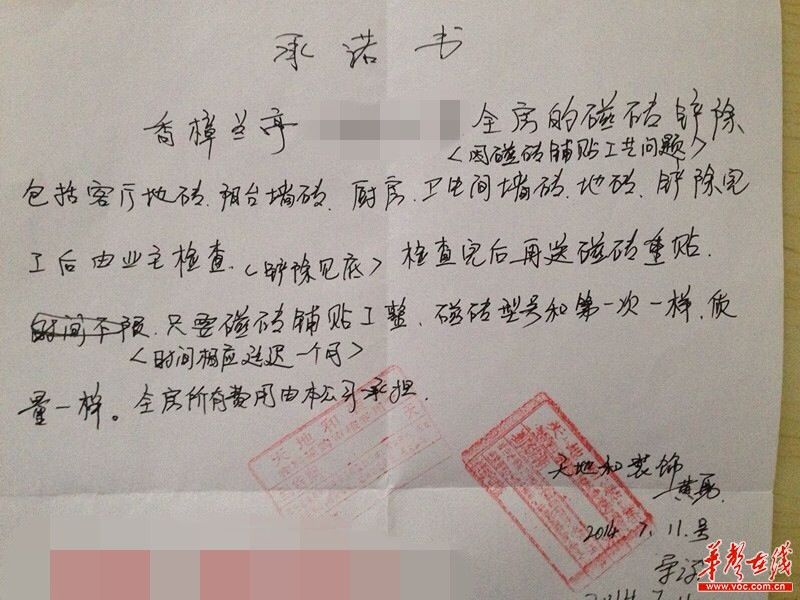 承诺书
香樟兰亭 全房的磁砖铲除
<因磁砖铺贴工艺问题>
包括客厅地砖、阳台墙砖、厨房、卫生间墙砖、地砖、铲除完
工后由业主检查、<铲除见底> 检查完后再送磁砖重贴.
时间不限.只要磁砖铺贴工整、磁砖型号和第一次一样,质
<时间相应延迟一个月>
量一样。全房所有费用由本公司承担.
天地和
天地
天地和装饰
2014 7.11.号
2014.7.11
华声在线
www.voc.com.cn